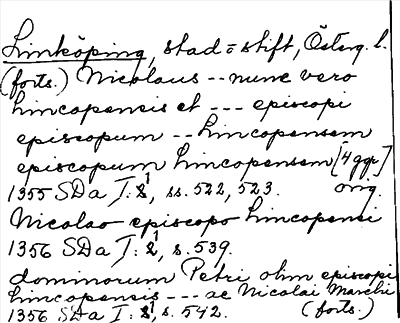 Linköping, stad o stift, Österg. l.
(forts.) Nicolaus -- nunc vero
lincopensis et --- episcopi
episcopum -- lincopensem
episcopum lincopensem [4 ggr]
1355 SDa I: 1, ss. 522, 523. orig.
Nicolao episcopo lincopensi
1356 SDa I: 1, s. 539.
dominorum Petri olim episcopi
lincopensis --- ac Nicolai Marchi
1356 SDa I: 1, s. 542. (forts.)